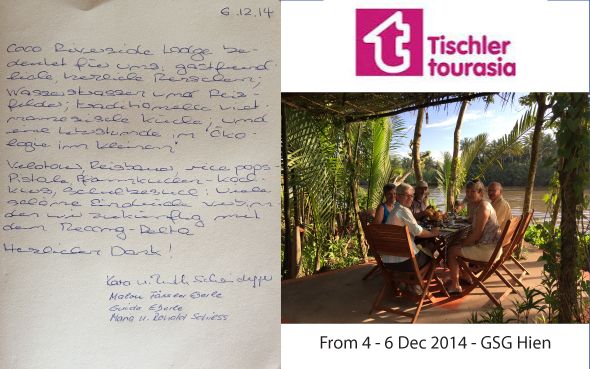 6.12.14
Coco Riverside Lodge be-
deutet für uns: gastfreund-
liche, herzliche Menschen;
Wasserstrassen und Reis-
felder; traditionelle viet-
namesische Küche; und
eine Lehrstunde im "Öko-
logie im Kleinen"
rice pops-
Pistole Pfannkuchen-Koch
kurs, Schulbesuch: viele
schöne Eindrücke verbin
den wir zukünftig mit
dem Mecong-Delta
Herzlichen Dank!
u.
Eberle
Guido Eberle
u. Ronald Schiess
Tischler
tourasia
From 4 - 6 Dec 2014 - GSG Hien